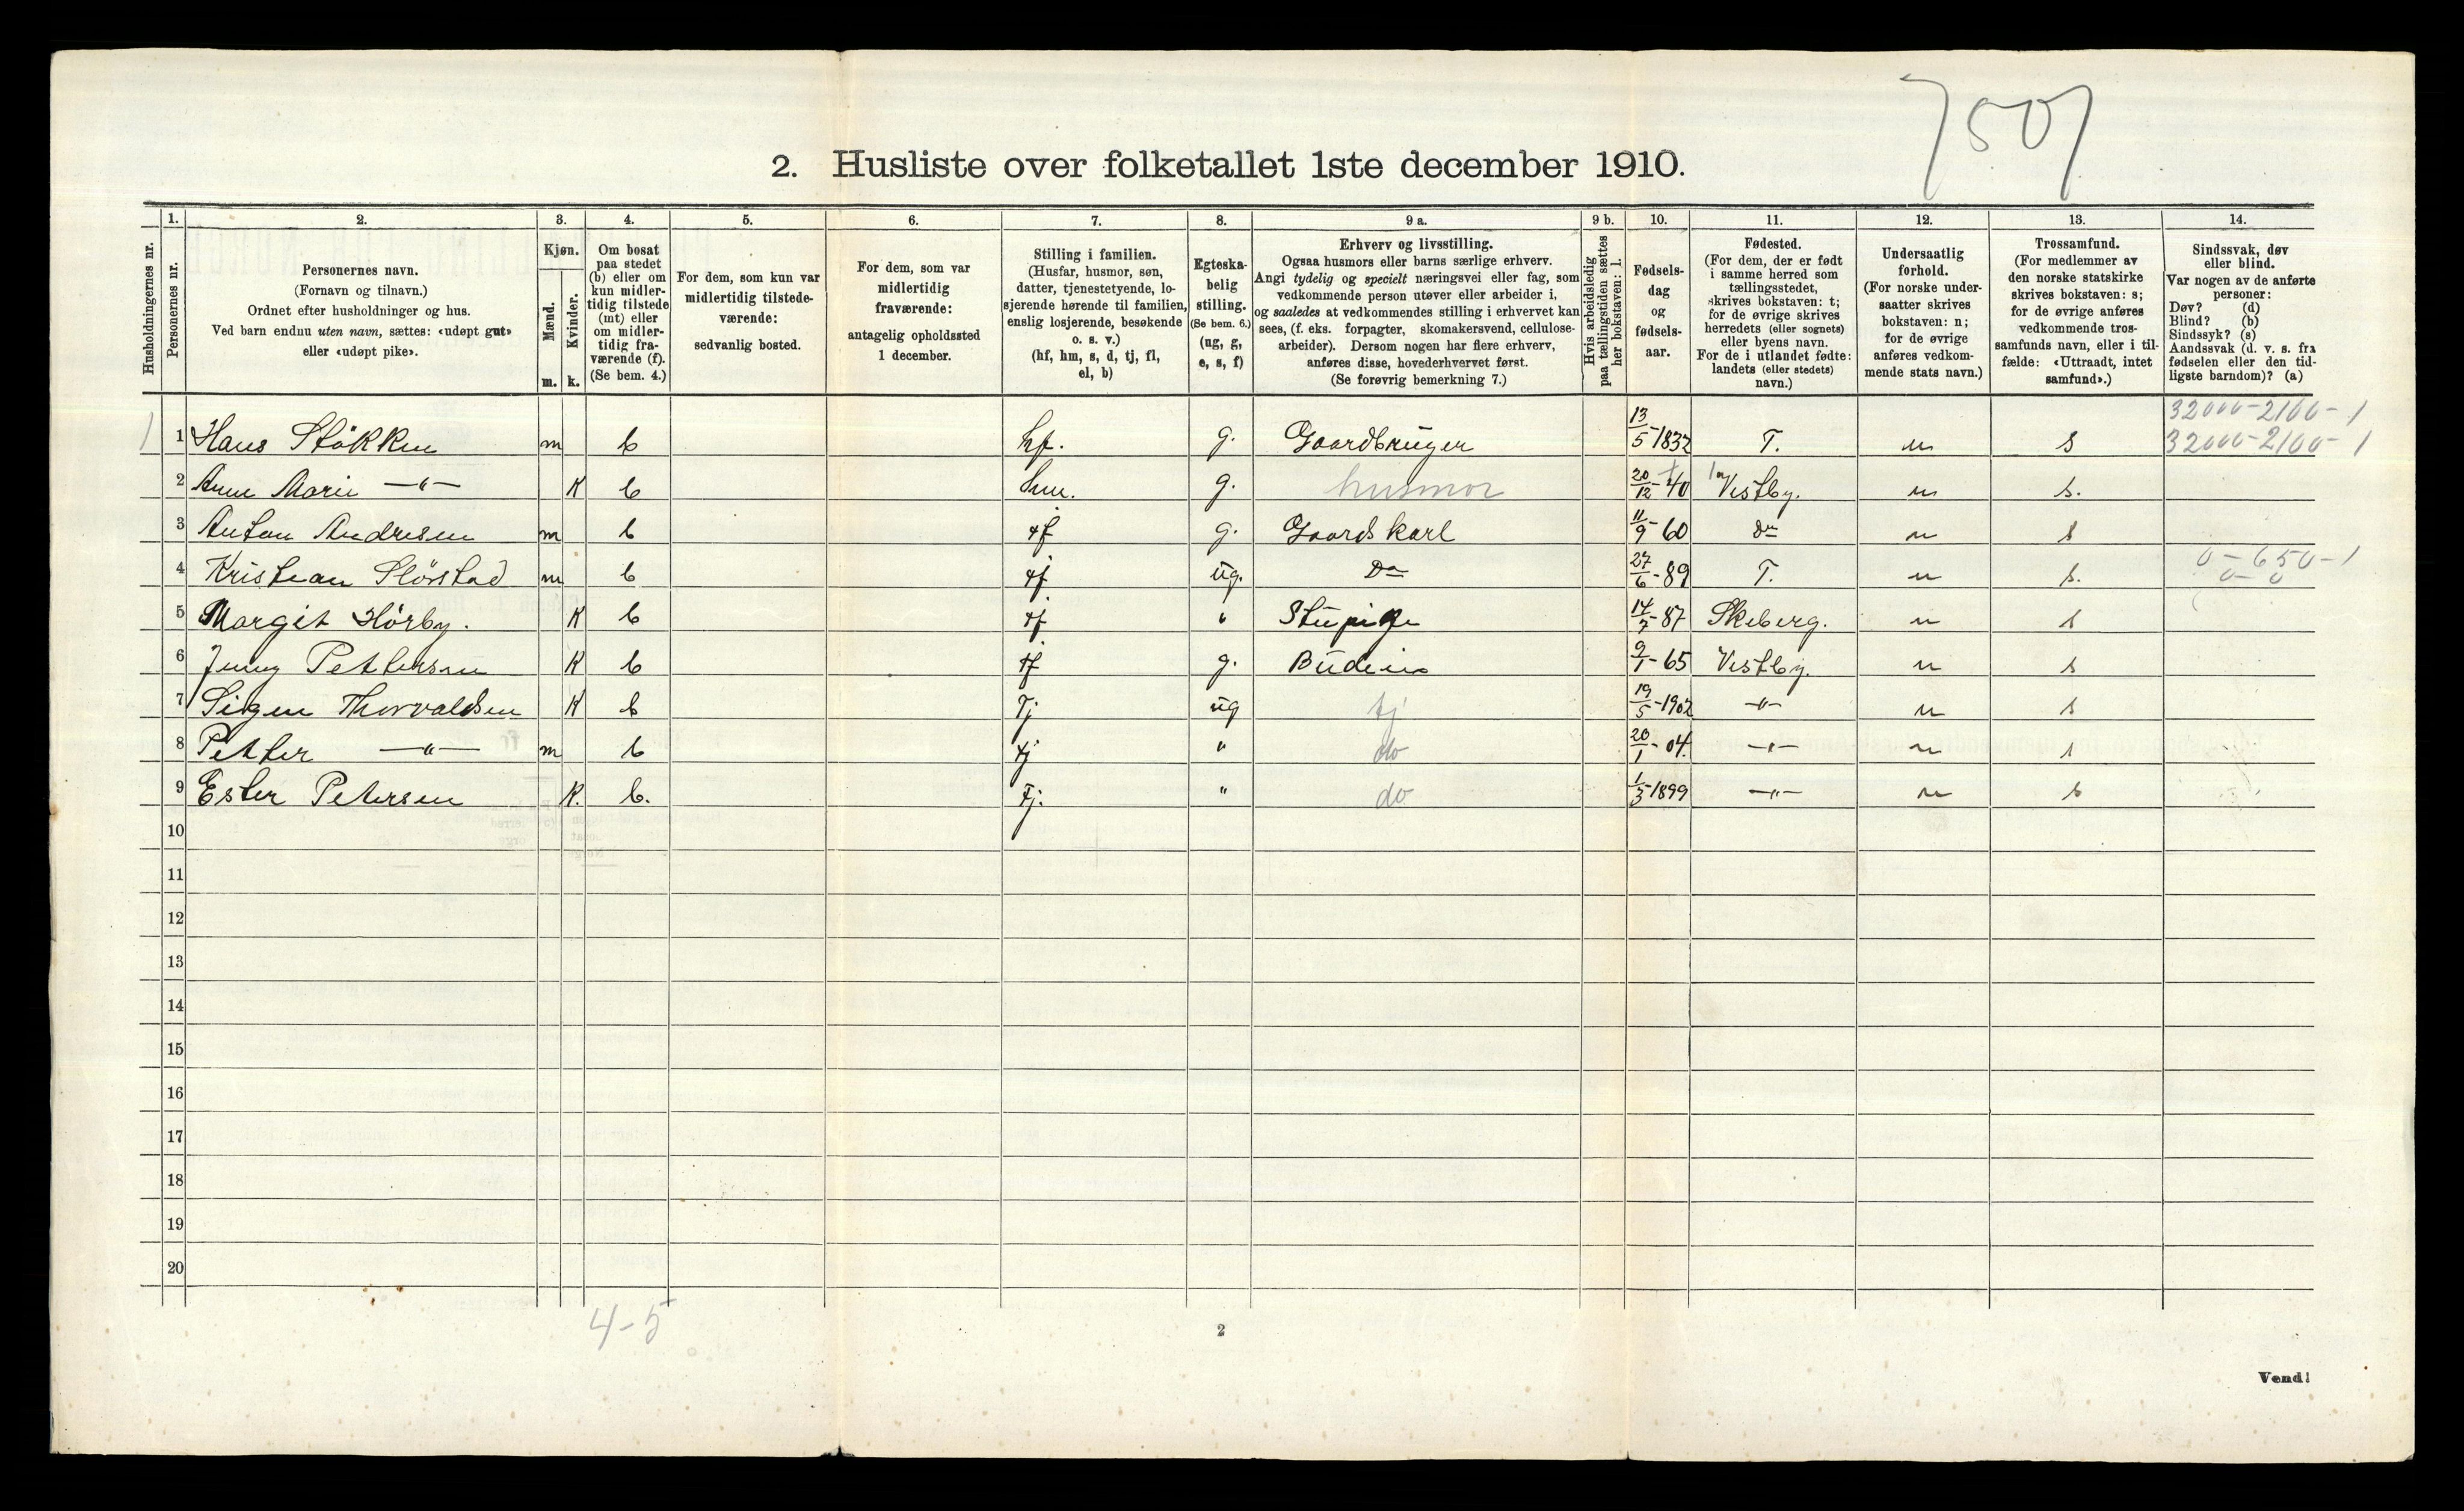 7507
2. Husliste over folketallet 1ste december 1910.
Husholdningernes nr.
1. Personernes nr.
2. Personernes navn.
(Fornavn og tilnavn.)
Ordnet efter husholdninger og hus.
Ved barn endnu uten navn, sættes: «udøpt gut»
eller «udøpt pike».
3. Kjøn.
Mænd. m.
Kvinder. k.
4. Om bosat
paa stedet
(b) eller om
kun midler-
tidig tilstede
(mt) eller
om midler-
tidig fra-
værende (f).
(Se bem. 4.)
5. For dem, som kun var
midlertidig tilstede-
værende:
sedvanlig bosted.
6. For dem, som var
midlertidig
fraværende:
antagelig opholdssted
1 december.
7. Stilling i familien.
(Husfar, husmor, søn,
datter, tjenestetyende, lo-
sjerende hørende til familien,
enslig losjerende, besøkende
o. s. v.)
(hf, hm, s, d, tj, fl,
el, b)
8. Egteska-
belig
stilling.
(Se bem. 6.)
(ug, g,
e, s, f)
9 a. Erhverv og livsstilling.
Ogsaa husmors eller barns særlige erhverv.
Angi tydelig og specielt næringsvei eller fag, som
vedkommende person utøver eller arbeider i,
og saaledes at vedkommendes stilling i erhvervet kan
sees, (f. eks. forpagter, skomakersvend, cellulose-
arbeider). Dersom nogen har flere erhverv,
anføres disse, hovederhvervet først.
(Se forøvrig bemerkning 7.)
9 b. Hvis arbeidsledig
paa tællingstiden sættes
her bokstaven: l.
10. Fødsels-
dag
og
fødsels-
aar.
11. Fødested.
(For dem, der er født
i samme herred som
tællingsstedet,
skrives bokstaven: t;
for de øvrige skrives
herredets (eller sognets)
eller byens navn.
For de i utlandet fødte:
landets (eller stedets)
navn.)
12. Undersaatlig
forhold.
(For norske under-
saatter skrives
bokstaven: n;
for de øvrige
anføres vedkom-
mende stats navn.)
13. Trossamfund.
(For medlemmer av
den norske statskirke
skrives bokstaven: s;
for de øvrige anføres
vedkommende tros-
samfunds navn, eller i til-
fælde: «Uttraadt, intet
samfund».)
14. Sindssvak, døv
eller blind.
Var nogen av de anførte
personer:
Døv? (d)
Blind? (b)
Sindssyk? (s)
Aandssvak (d. v. s. fra
fødselen eller den tid-
ligste barndom)? (a)
32000-2100-1
1 1 Hans Stökken m b hf. g. Gaardbruger 13/5-1832 T. n s 32000-2100-1
2 Anne Marie —"— K b hm. g. husmor 20/12-40 Vestby. n s.
3 Anton Andresen m b tj g. Gaardskarl 11/9-60 Do n s
4 Kristian Slörstad m b tj. ug. Do 27/6-89 T. n s. 0-650-1
0-0
5 Margit Hörby. K b tj " Stupige 14/7-87 Skeberg. n s
6 Jenny Pettersen K b tj g. Budeie 9/1-65 Vestby. n s
7 Signe Thorvaldsen K b Tj ug tj 19/5-1902 —"— n s
8 Petter —"— m b tj " do 20/1-04. —"— n s
9 Ester Petersen K. b. Tj. " do 1/3-1899 —"— n s
10
11
12
13
14
15
16
17
18
19
20
4-5
2
Vend!